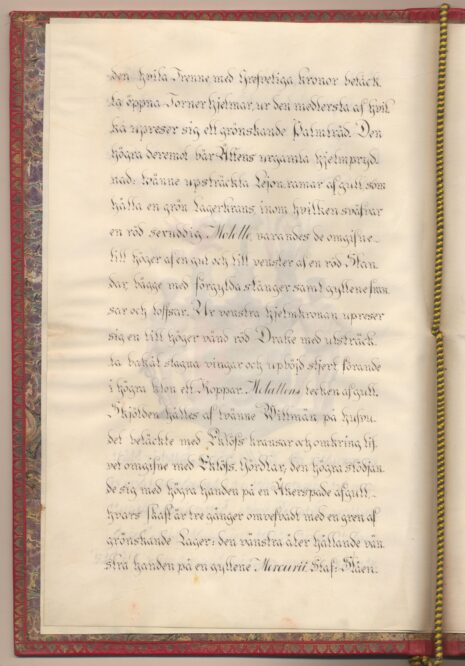 den hvila Trenne med Grefvetiga kronor betäck
ta öppna Tornerhjelmar, ur den medlersta af hvil
ka upreser sig ett grönskande Palmträd. Den
högra deremot bär Ättens urgamla hjelmpryd
nad: tvänne upsträckta Lejonramar af gull, som
hålla en grön Lagerkrans, inom hvilken sväfvar
en röd sexuddig Molette, varandes de omgifne
till höger af en gul och till venster af en röd Stan
dar, bägge med förgylda stänger samt gyllene fran
sar och toffsar. Ur venstra hjelmkronan upreser
sig en till höger vänd röd Drake med utsträck
ta bakåt slagna vingar och uphöjd stjert, förande
i högra klon ett Koppar Metallens tecken af gull.
Skjölden hålles af tvänne Wittmän på hufvu
det betäckte med Eklöfs kransar och omkring lif
vet omgifne med Eklöfs Gördlar, den högra stödjan
de sig med högra handen på en Åkerspade af gull
hvars skaft är tre gånger omvefvadt med en gren af
grönskande Lager: den vänstra åter hållande vän
stra handen på en gyllene Mercurii Staf: Stäen.